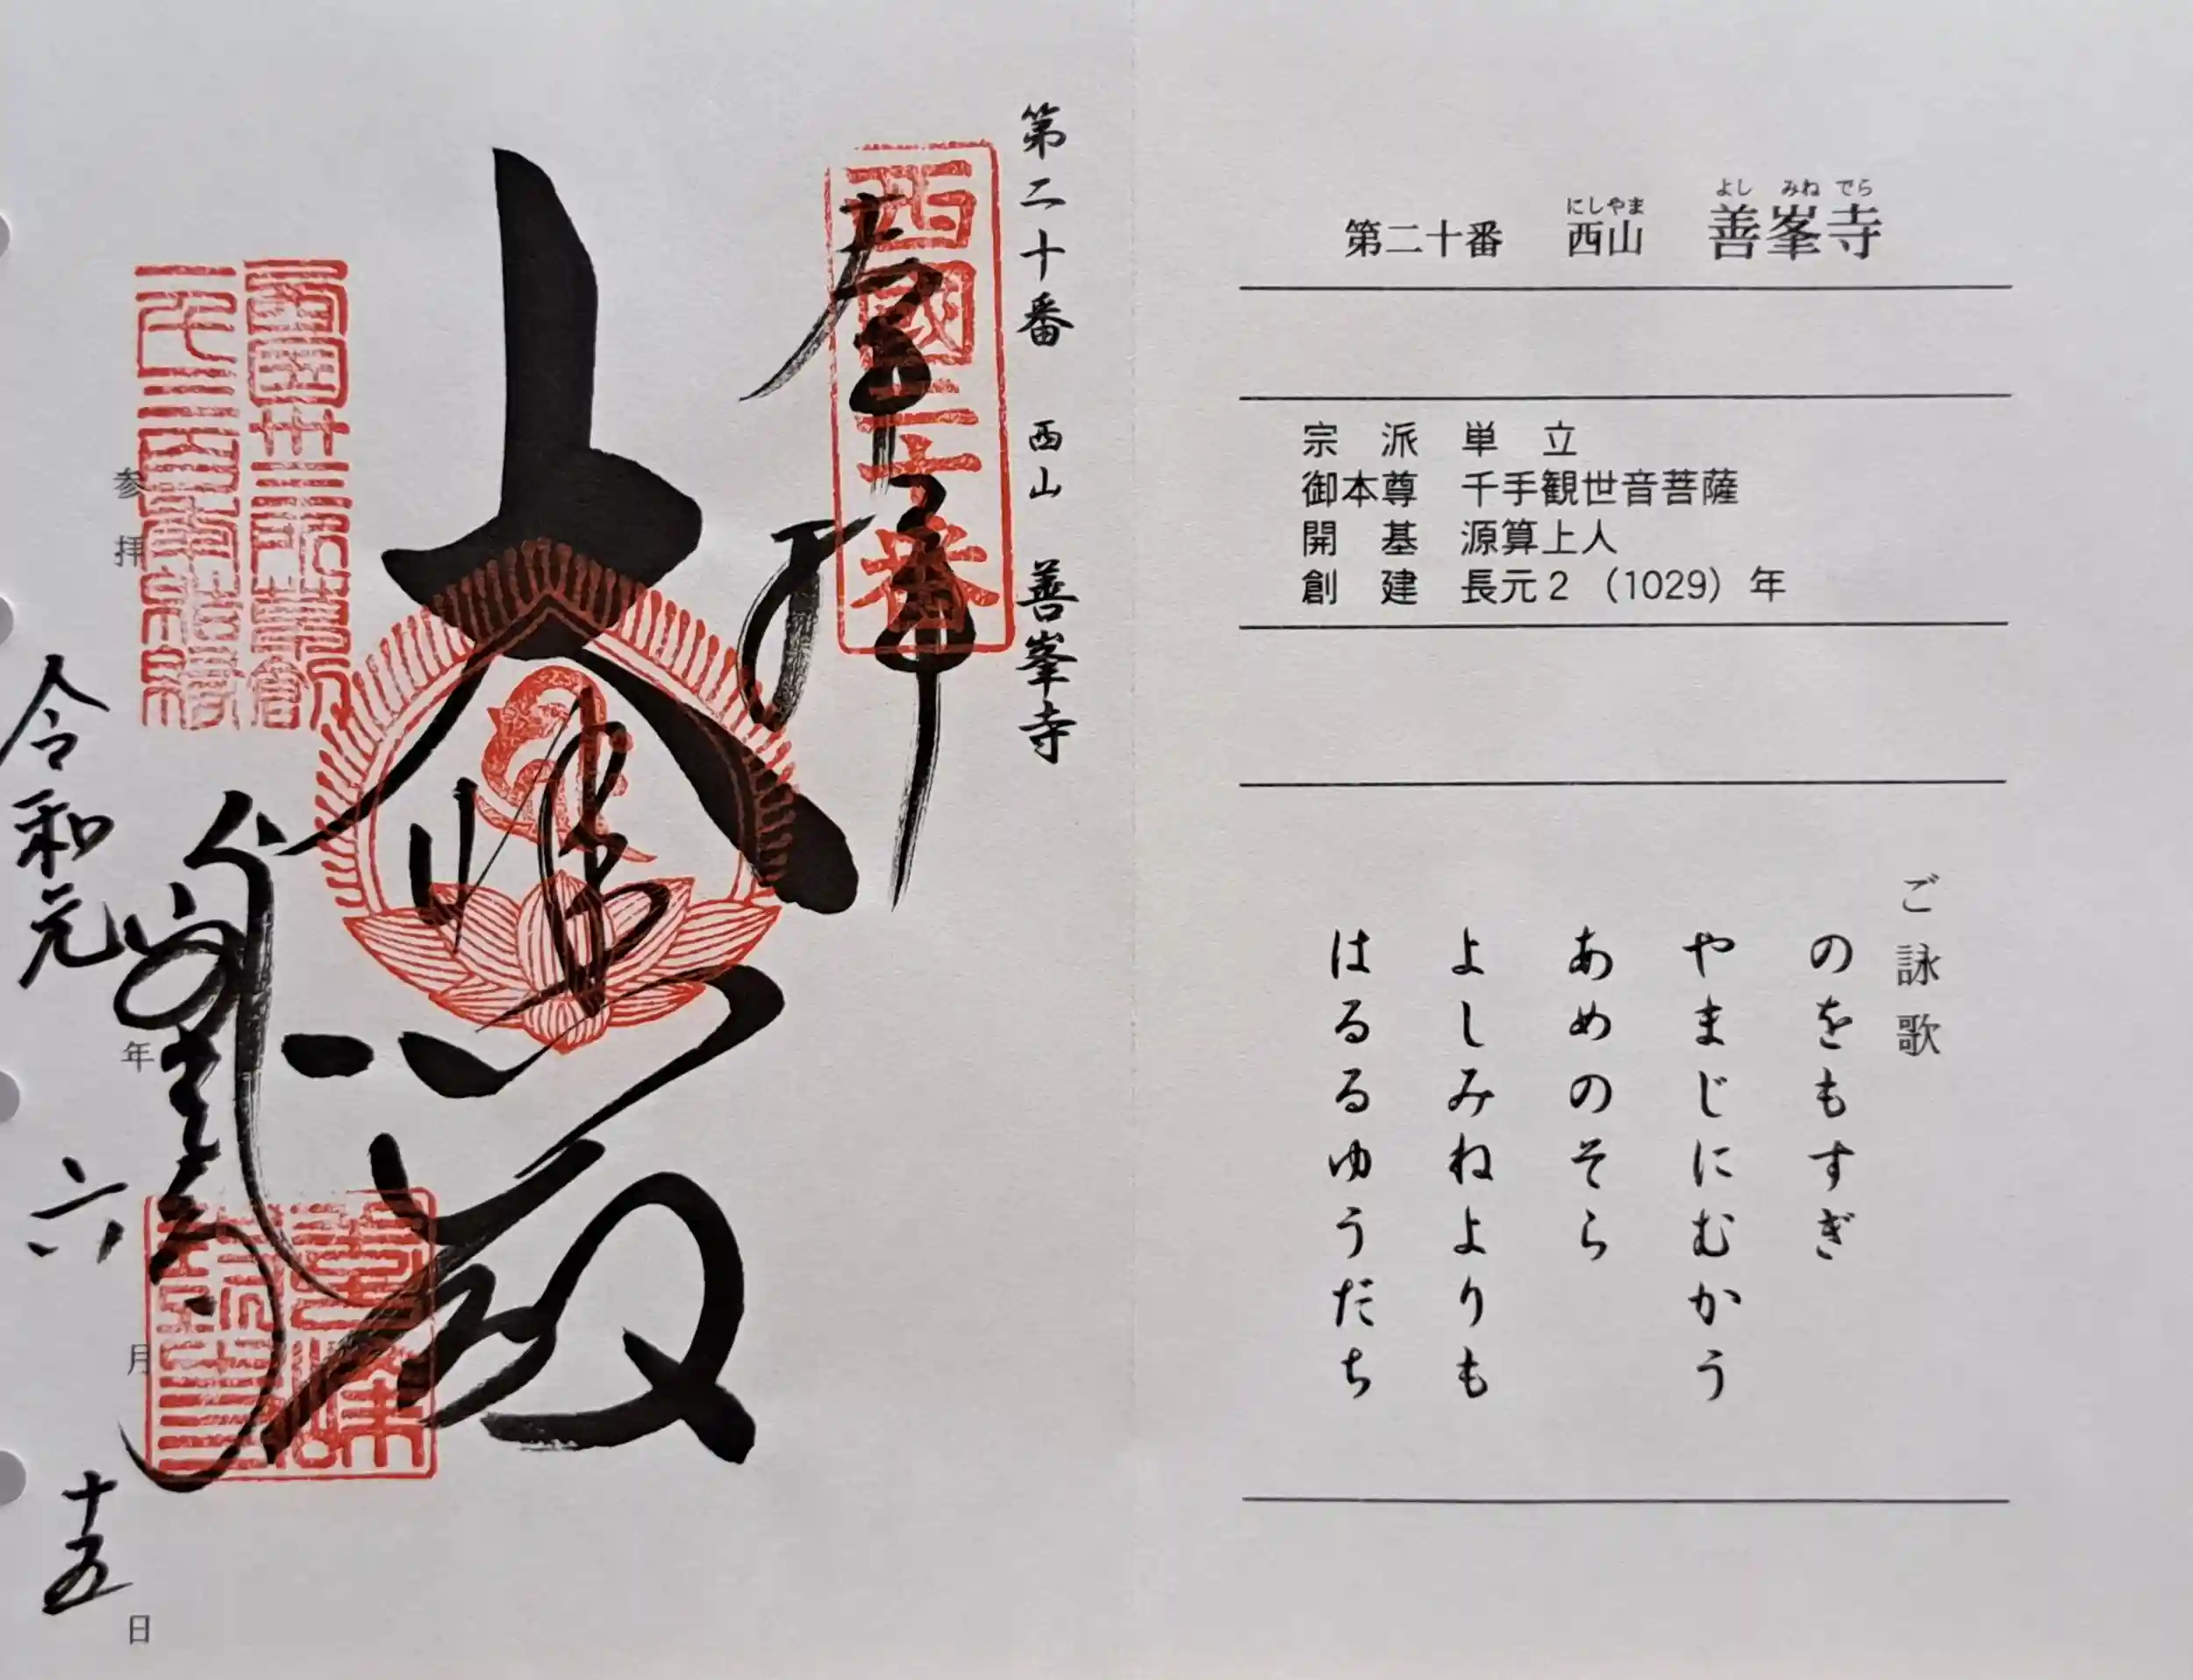 よし みね でら
にしやま
第二十番 西山 善峯寺
宗 派 単 立
御本尊 千手観世音菩薩
開 基 源算上人
創 建 長元2 (1029) 年
ご詠歌
のをもすぎ
やまじにむかう
あめのそら
よしみねよりも
はるるゆうだち
第二十番 西山 善峯寺
西國二十番
奉拝
大悲殿
善峯寺
参拝
令和元年六月十五日